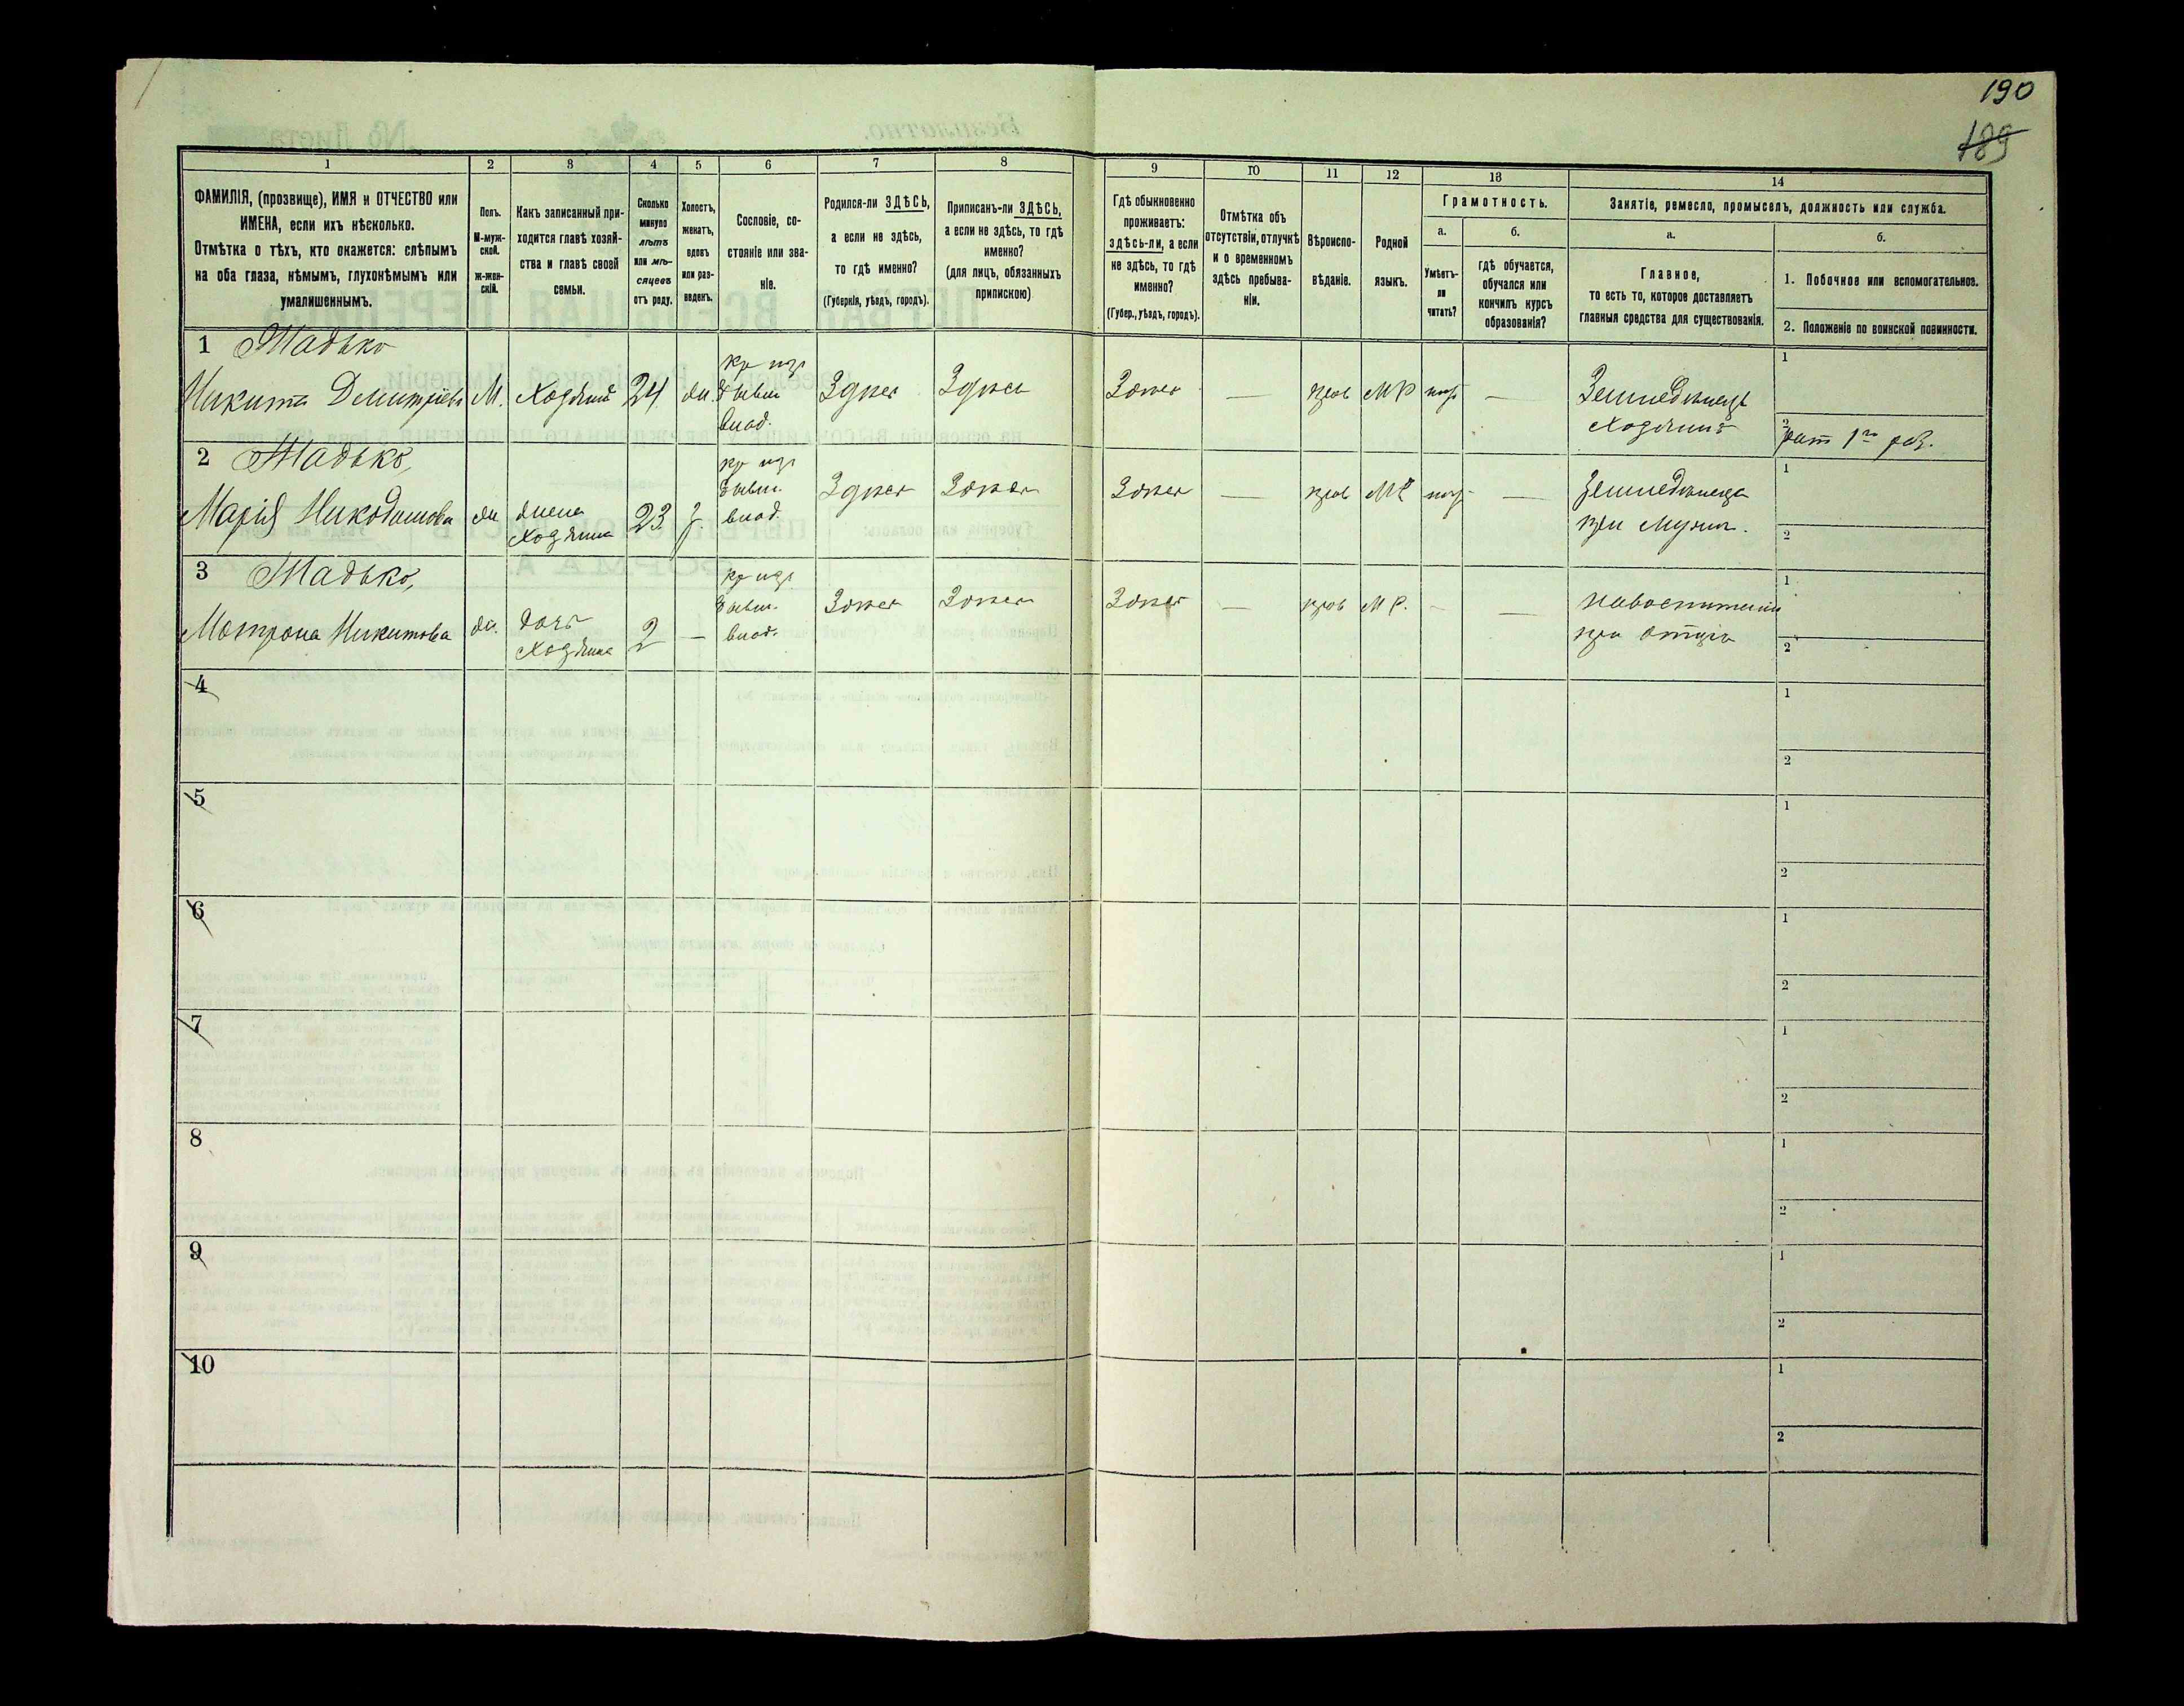 190
189
1
2
3
4
5
6
7
8
9
10
11
12
13
14
ФАМИЛІЯ, (прозвище), ИМЯ и ОТЧЕСТВО или
ИМЕНА, если ихъ нѣсколько.
Отмѣтка о тѣхъ, кто окажется: слѣпымъ
на оба глаза, нѣмымъ, глухонѣмымъ или
умалишеннымъ.
Полъ.
М-муж-
ской.
ж-жен-
скій.
Какъ записанный при-
ходится главѣ хозяй-
ства и главѣ своей
семьи.
Сколько
минуло
лѣтъ
или мѣ-
сяцевъ
отъ роду.
Холостъ,
женатъ,
вдовъ
или раз-
веденъ.
Сословіе, со-
стояніе или зва-
ніе.
Родился-ли ЗДѢСЬ,
а если не здѣсь,
то гдѣ именно?
(Губернія, уѣздъ, городъ).
Приписанъ-ли ЗДѢСЬ,
а если не здѣсь, то гдѣ
именно?
(для лицъ, обязанныхъ
припискою)
Гдѣ обыкновенно
проживаетъ:
здѣсь-ли, а если
не здѣсь, то гдѣ
именно?
(Губер., уѣздъ, городъ).
Отмѣтка объ
отсутствіи, отлучкѣ
и о временномъ
здѣсь пребыва-
ніи.
Вѣроиспо-
вѣданіе.
Родной
языкъ.
Грамотность.
а.
Умѣетъ-
ли
читать?
б.
гдѣ обучается,
обучался или
кончилъ курсъ
образованія?
Занятіе, ремесло, промыселъ, должность или служба.
а.
Главное,
то есть то, которое доставляетъ
главныя средства для существованія.
б.
1. Побочное или вспомогательное.
2. Положеніе по воинской повинности.
1 Мадько
Никита Дмитріевъ М. Хозяинъ 24 Здѣсь Здѣсь Здѣсь — прав МР — Земледѣлецъ
хозяинъ
1
2 рат 1го раз.
2 Мадько,
Марія Никодимова жена 23 Здѣсь Здѣсь Здѣсь — прав МР — Земледѣлица
хозяина при мужѣ.
1
2
3 Мадько,
Мотрона Никитова дочь 2 — Здѣсь Здѣсь Здѣсь — прав МР. — —
хозяина при отцѣ
1
2
4
1
2
5
1
2
6
1
2
7
1
2
8
1
2
9
1
2
10
1
2